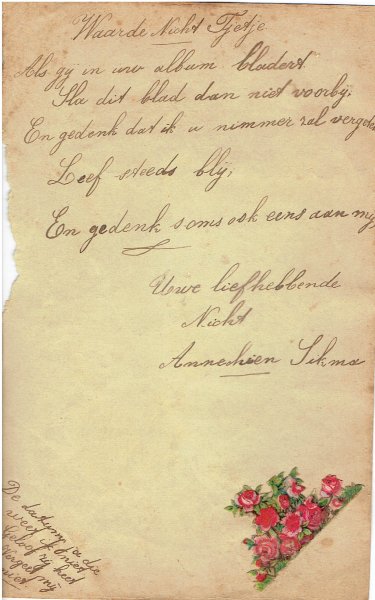 Waarde Nicht Tjetje
Als gy in uw album bladert
Sla dit blad dan niet voorby,
En gedenk dat ik u nimmer zal vergeten
Leef steeds bly,
En gedenk soms ook eens aan my,
Uwe liefhebbende
Nicht
Annechien Sikma
De datum a die
weet ik niet
Geloof zy heet
Vergeet my
niet.